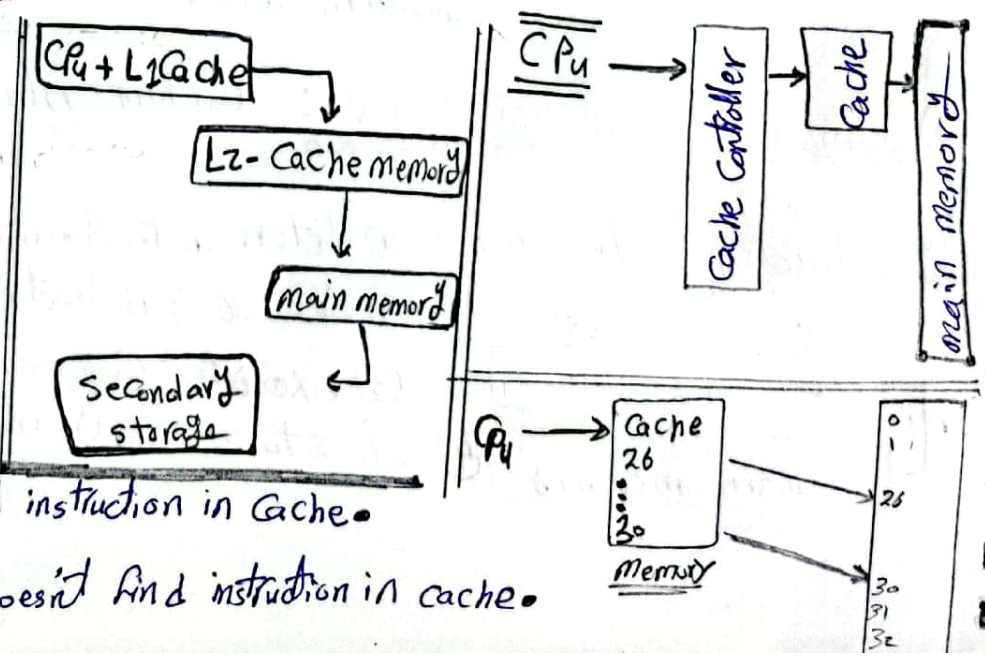 CPu + L1 Cache
L2 - Cache memory
main memory
Secondary
storage
CPu
Cache Controller
Cache
main memory
Cpu
Cache
26
30
memory
0
1
26
30
31
32
instruction in Cache.
oesn't find instruction in cache.